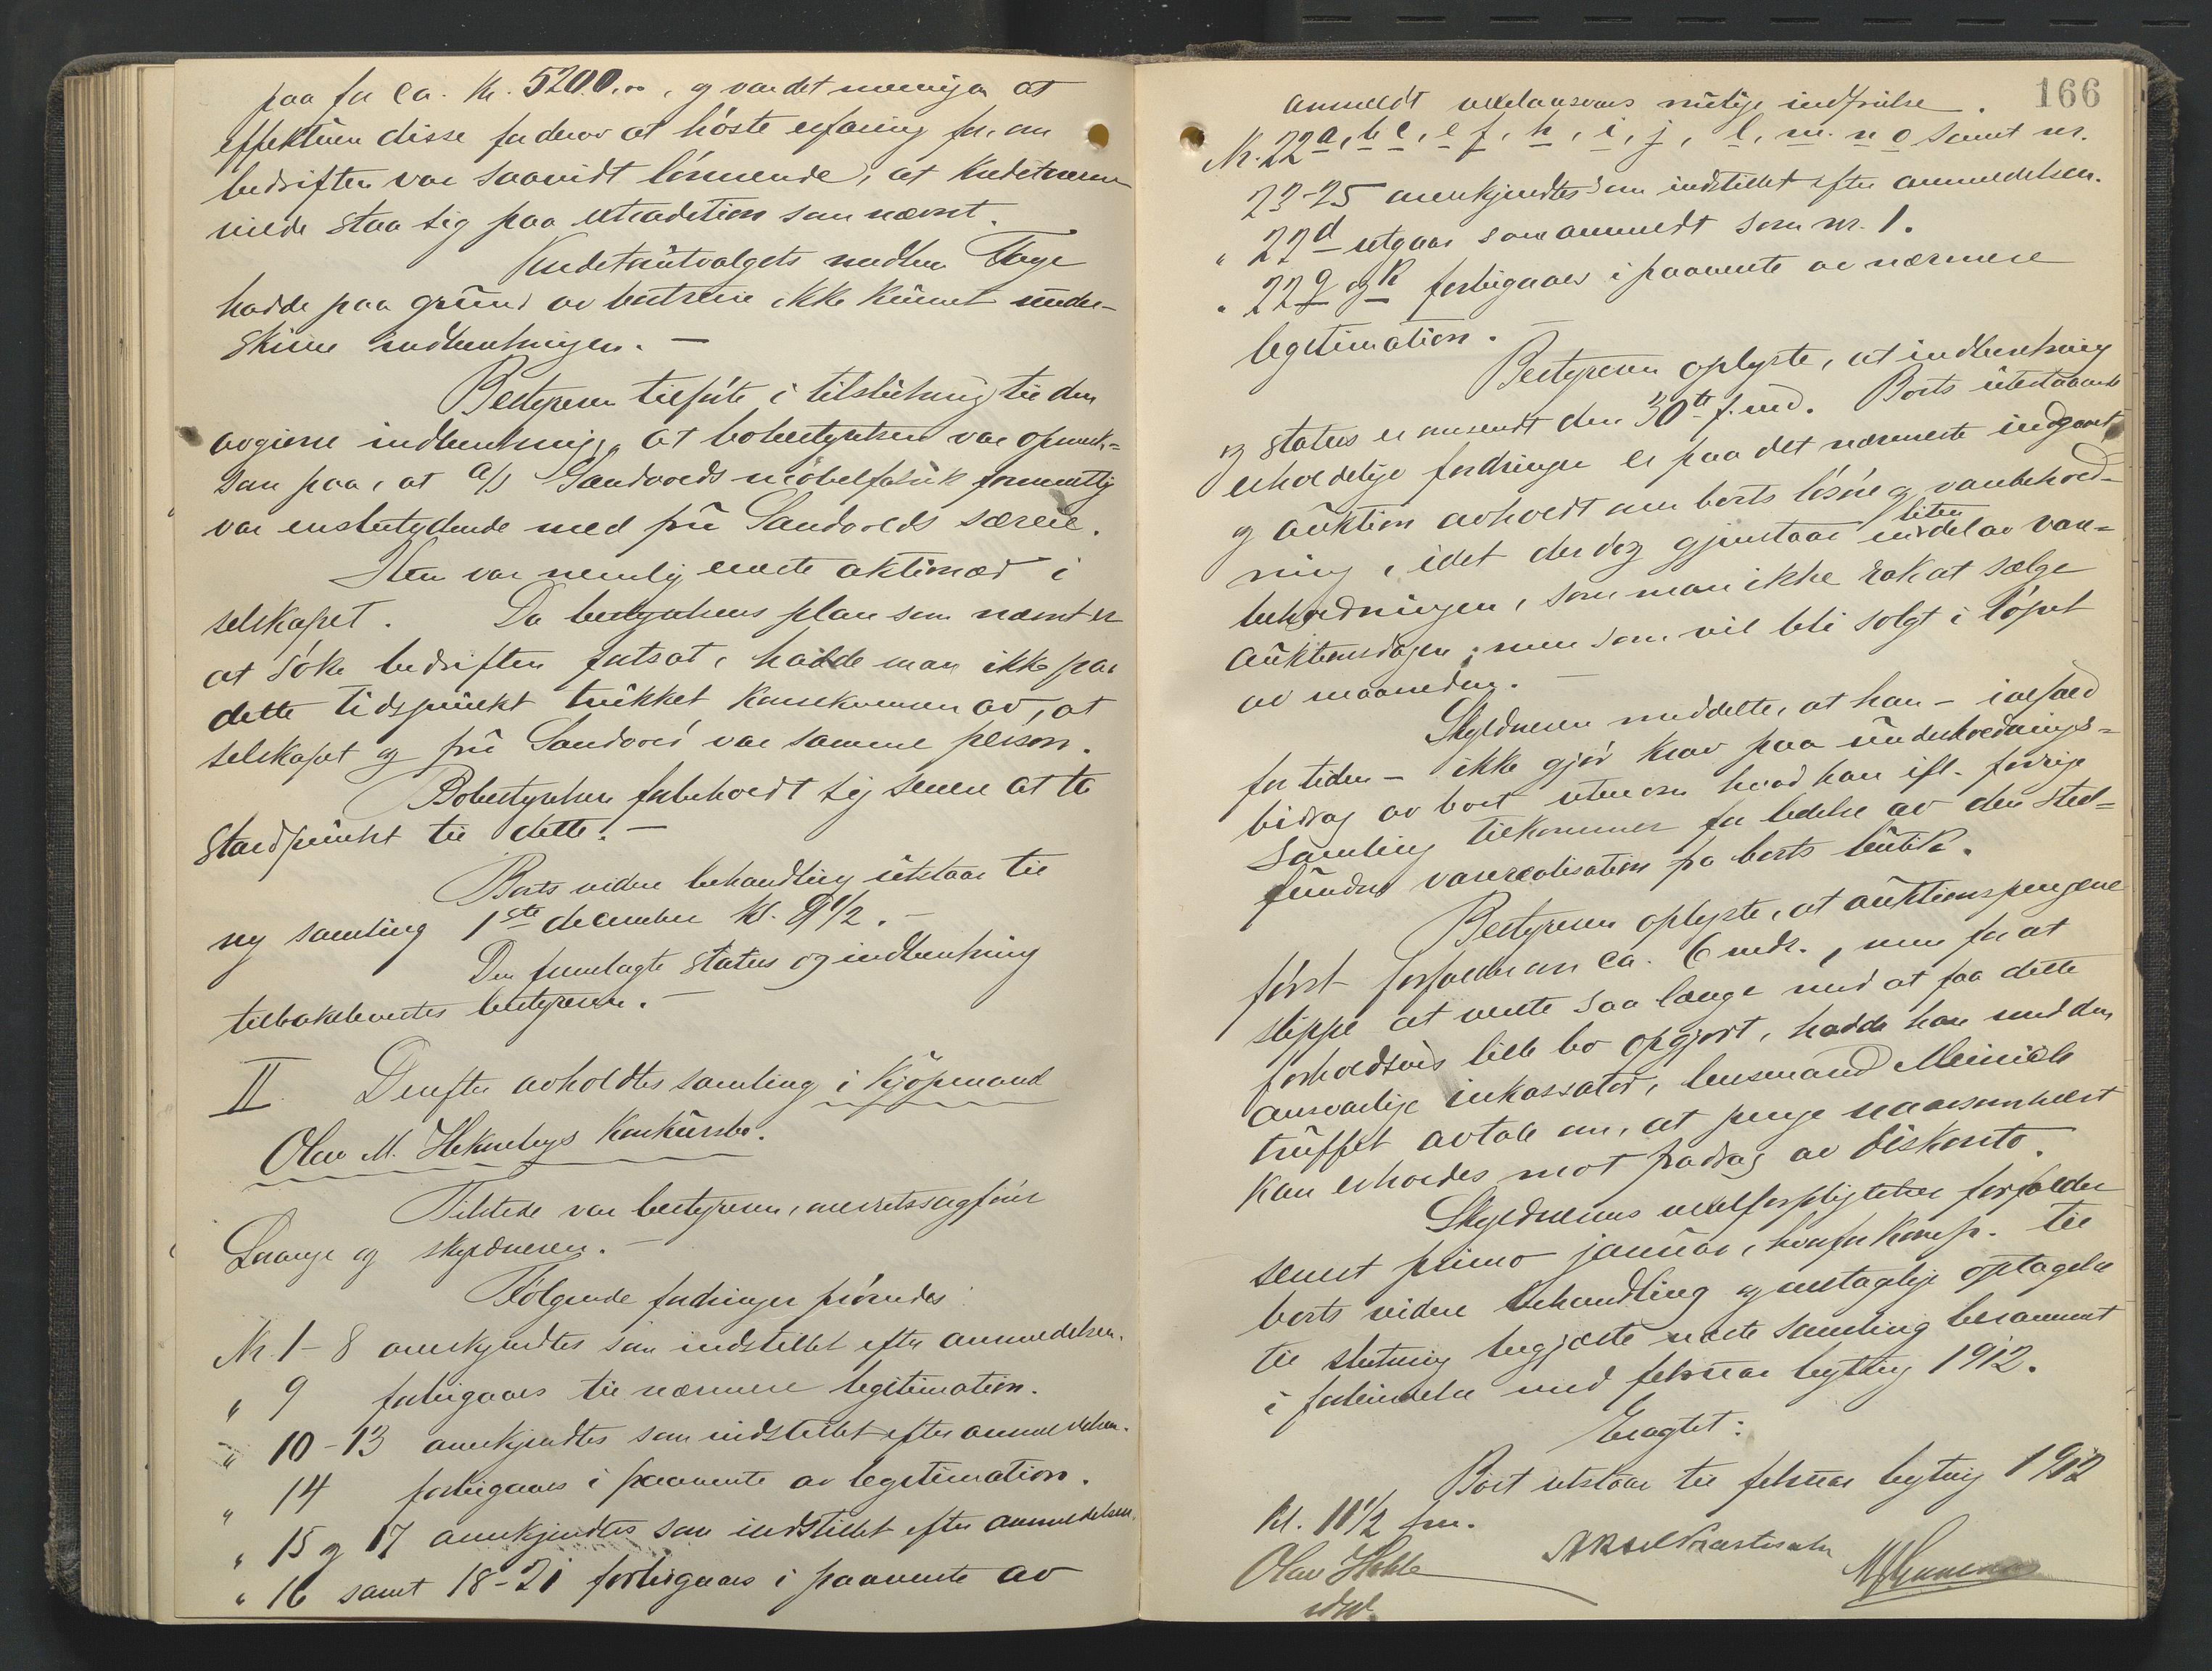 paa for ca. Kr. 5200,00, og var det meningen at
effektuere disse for derav at høste erfaring for, om
bedriften var saavidt lønnende, at kreditorerne
vilde staa sig paa extradition som nævnt.
Kreditorutvalgets medlem Tharge
hadde paa grund av bortreise ikke kunnet under-
skrive indberetningen. —
Bestyreren tilføiet i tilslutning til den
avgivne indberetning, at bobestyrelsen var opmerk-
som paa, at A/S Sandvolds møbelfabrik formentlig
var ensbetydende med fru Sandvolds særeie.
Hun var nemlig eneste aktionær i
selskapet. Da bestyrelsens plan som nævnt er
at søke bedriften fortsat, hadde man ikke paa
dette tidspunkt trukket konsekvensen av, at
selskapet og fru Sandvold var samme person.
Bobestyrelsen forbeholdt sig senere at ta
standpunkt til dette. —
Boets videre behandling utstaar til
ny samling 1ste december kl. 9 1/2. —
Den fremlagte status og indberetning
tilbakeleveres bestyreren. —
II Derefter avholdtes samling i Kjøpmand
Olav M. Heknebys konkursbo.
Tilstede var bestyreren, overretssagfører
Lrange og skyldneren. —
Følgende fordringer prøvedes:
Nr. 1 - 8 anerkjendtes som indstillet efter anmeldelsen.
" 9 forbigaaes til nærmere legitimation.
" 10 - 13 anerkjendtes som indstillet efter anmeldelsen.
" 14 forbigaaes i paavente av legitimation.
" 15 og 17 anerkjendtes som indstillet efter anmeldelsen.
" 16 samt 18 - 21 forbigaaes i paavente av
166
anmeldt vekselansvars mulige indfrielse.
Nr. 22 a, b c, e f, h, i, j, l, m. n o samt nr.
23-25 anerkjendtes som indstillet efter anmeldelsen.
" 22 d utgaar som anmeldt som nr. 1.
" 22 g og k forbigaaes i paavente av nærmere
legitimation. —
Bestyreren oplyste, at indberetning
og status er omsendt den 30te f. md. Boets utestaaende
erholdelige fordringer er paa det nærmeste indgaat
og auktion avholdt over boets løsøre og varebehold-
ning, idet der dog gjenstaar en liten del av vare-
beholdningen, som man ikke rak at sælge
auktionsdagen, men som vil bli solgt i løpet
av maaneden. —
Skyldneren meddelte, at han - ialfald
for tiden - ikke gjør krav paa underholdnings-
bidrag av boet utenom hvad han ifl. forrige
samling tilkommer for ledelse av den sted-
fundne varerealisation fra boets butik.
Bestyreren oplyste, at auktionspengene
først forfalder om ca. 6 mdr., men for at
slippe at vente saa længe med at faa dette
forholdsvis lille bo opgjort, hadde han med den
ansvarlige inkassator, lensmand Meinich
truffet avtale om, at penge naarsomhelst
kan erholdes mot fradrag av diskonto.
Skyldnerens vekselforpligtelser forfalder
senest primo januar, hvorfor komp. til
boets videre behandling og antagelige optagelse
til slutning begjærte næste samling berammet
i forbindelse med februar bygting 1912.
Eragtet:
Boet utstaar til februar bygting 1912
kl. 11 1/2 fm.
Olav Hekle